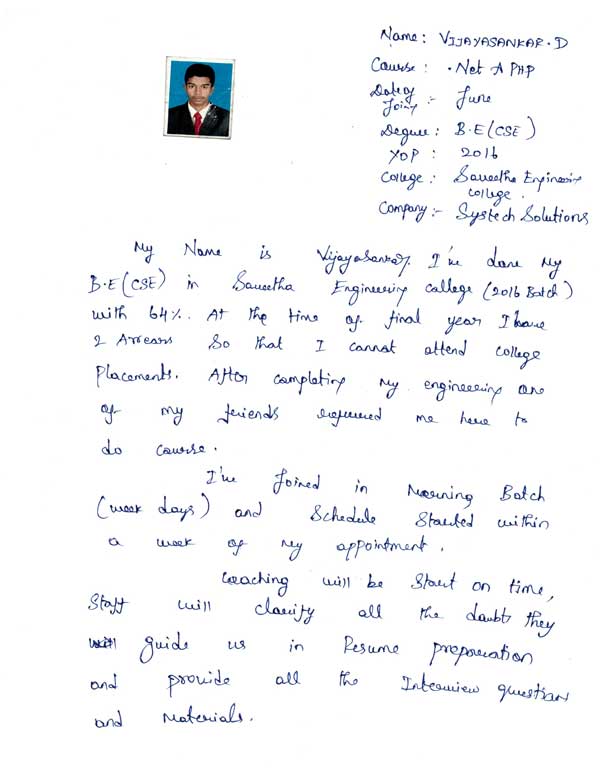 Name: VIJAYASANKAR.D
Course: .Net & PHP
Date of Joing :- June
Degree: B.E(CSE)
YOP: 2016
College: Saveetha Engineering
college.
Company:- Systech Solutions
My Name is Vijayasankar. I've done my
B.E(CSE) in Saveetha Engineering college (2016 Batch)
with 64%. At the time of final year I have
2 Arrears So that I cannot attend college
Placements. After completing my engineering one
of my friends referred me here to
do course.
I've Joined in Morning Batch
(week days) and Schedule Started within
a week of my appointment.
Coaching will be Start on time,
Staff will clarify all the doubts they
will guide us in Resume preparation
and provide all the Interview question
and Materials.